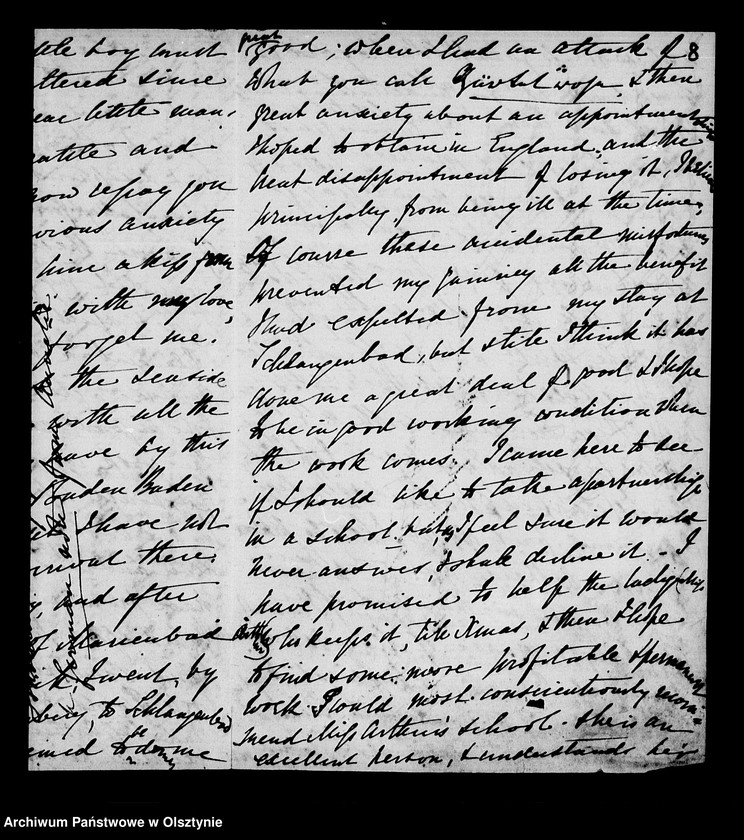 ttle boy must
ttered since
ear little man.
and
now repay you
vious anxiety
him a kiss from
with my love
forget me.
the seaside
with all the
have by this
Baden Baden
I have not
arrival there.
and after
of Marienbad
I went, by
berg, to Schlangenbad
seemed to be doing me
great
good; when I had an attack of 8
what you call "Gürtelrose", & then
great anxiety about an appointment
I hoped to obtain in England, and the
great disappointment of losing it,
principally from being ill at the time.
Of course these accidental misfortunes
prevented my gaining all the benefit
I had expected from my stay at
Schlangenbad, but still I think it has
done me a great deal of good & I hope
to be in good working condition when
the work comes. I came here to see
if I should like to take a partnership
in a school, but, as I feel sure it would
never answer, I shall decline it. - I
have promised to help the lady
who keeps it, till Xmas, & then I hope
to find some more profitable & permanent
work. I would most conscientiously recom=
mend Miss Arthur's school. She is an
excellent person, & understands her
Archiwum Państwowe w Olsztynie